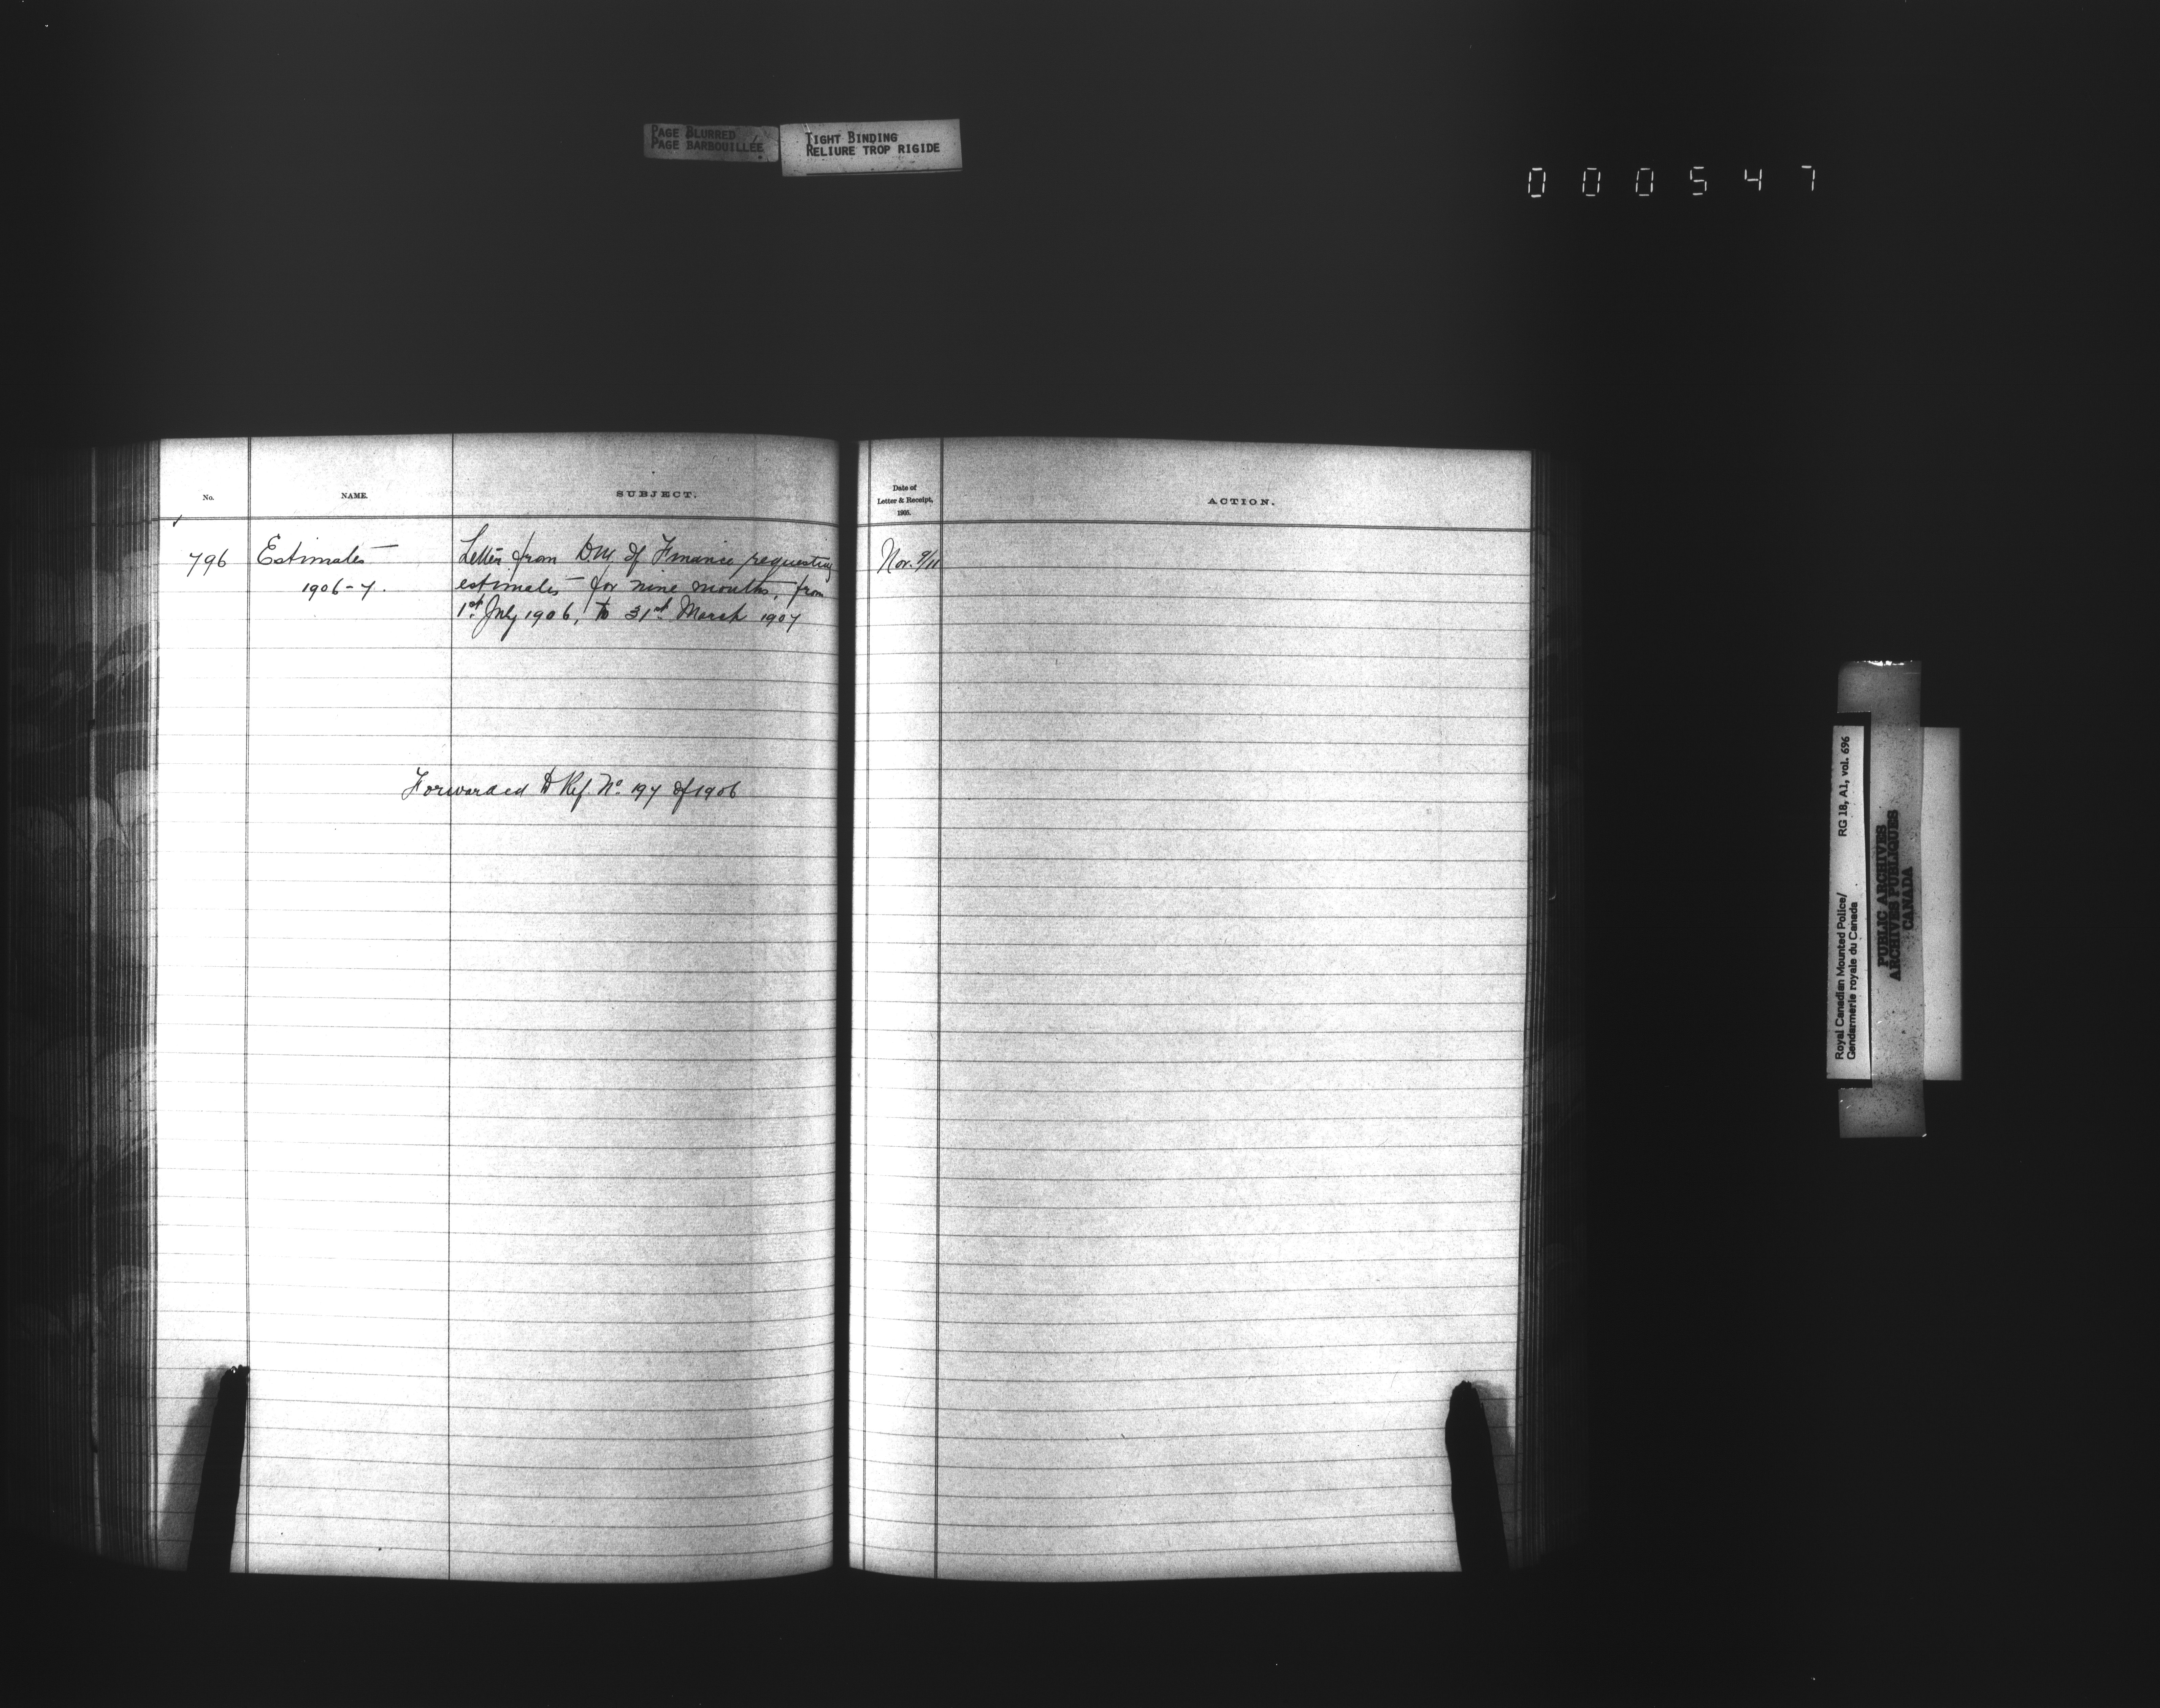 PAGE BLURRED
PAGE BARBOUILLÉE
TIGHT BINDING
RELIURE TROP RIGIDE
000547
No.
NAME.
SUBJECT.
Date of
Letter & Receipt,
1905.
ACTION.
796
Estimates
1906-7.
Letter from D.M. of Finance requesting
estimates for nine months, from
1st July 1906, to 31st March 1907
Nov. 9/11
Forwarded to Ref. No. 197 of 1906
Royal Canadian Mounted Police/
Gendarmerie royale du Canada
RG 18, A1, vol. 696
PUBLIC ARCHIVES
ARCHIVES PUBLIQUES
CANADA